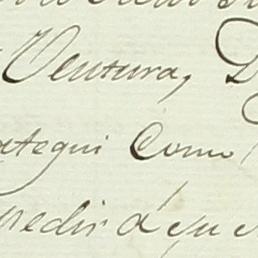 Ventura, D
ategui Como
pedir á que